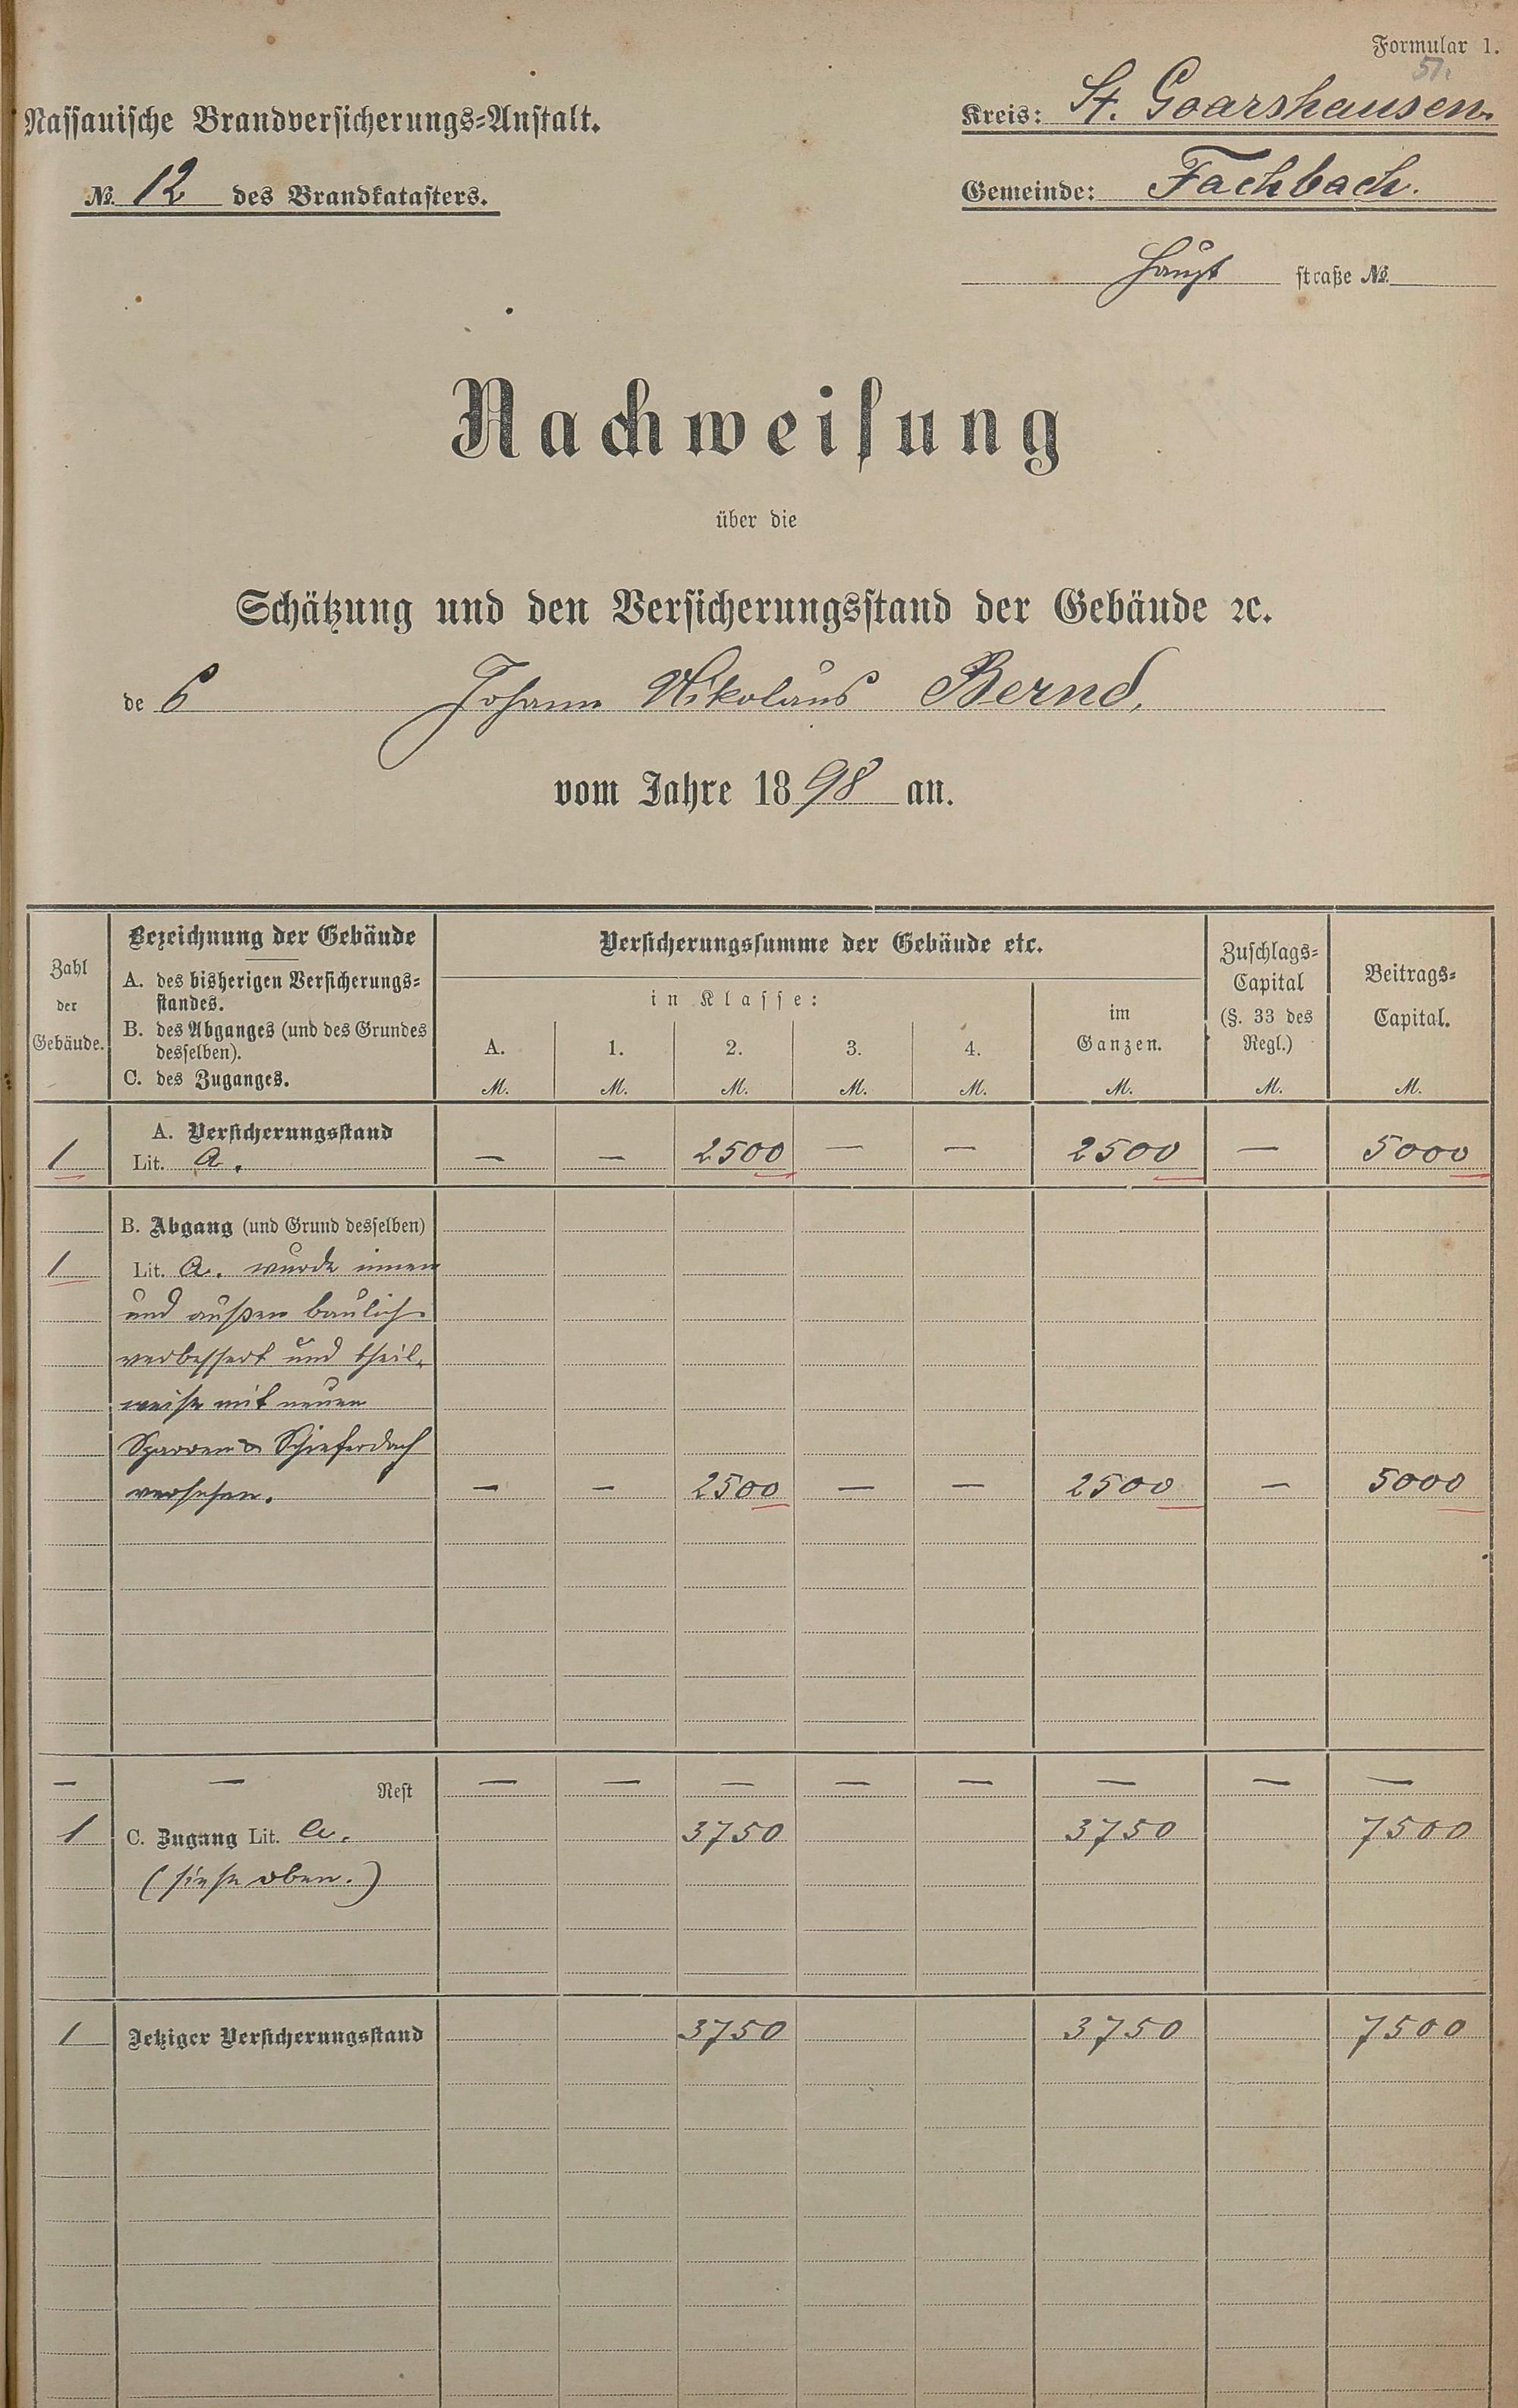 Formular 1.
51.
Nassauische Brandversicherungs-Anstalt.
Kreis: St. Goarshausen.
No. 12 des Brandkatasters.
Gemeinde: Fachbach.
Haupt straße No.
Nachweisung
über die
Schätzung und den Versicherungsstand der Gebäude ꝛc.
des Johann Nikolaus Bernd,
vom Jahre 1898 an.
Zahl der Gebäude.
Bezeichnung der Gebäude
A. des bisherigen Versicherungs-
standes.
B. des Abganges (und des Grundes
desselben).
C. des Zuganges.
Versicherungssumme der Gebäude etc.
in Klasse:
A. 1. 2. 3. 4.
M. M. M. M. M.
im
Ganzen.
M.
Zuschlags-
Capital
(§. 33 des
Regl.)
M.
Beitrags-
Capital.
M.
A. Versicherungsstand
1 Lit. a. — — 2500 — — 2500 — 5000
B. Abgang (und Grund desselben)
1 Lit. a. wurde innen
und außen baulich
verbessert und theil-
weise mit neuen
Sparren & Schieferdach
versehen. — — 2500 — — 2500 — 5000
— — Rest — — — — — — — —
1 C. Zugang Lit. a. 3750 3750 7500
(siehe oben.)
1 Jetziger Versicherungsstand 3750 3750 7500